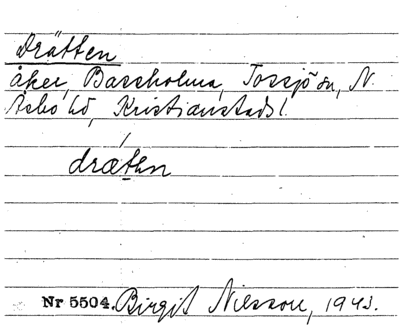 Drätten
åker, Bassholma, Tossjö sn, N.
Åsbo hd, Kristianstads l.
drætən
Nr 5504. Birgit Nilsson, 1943.